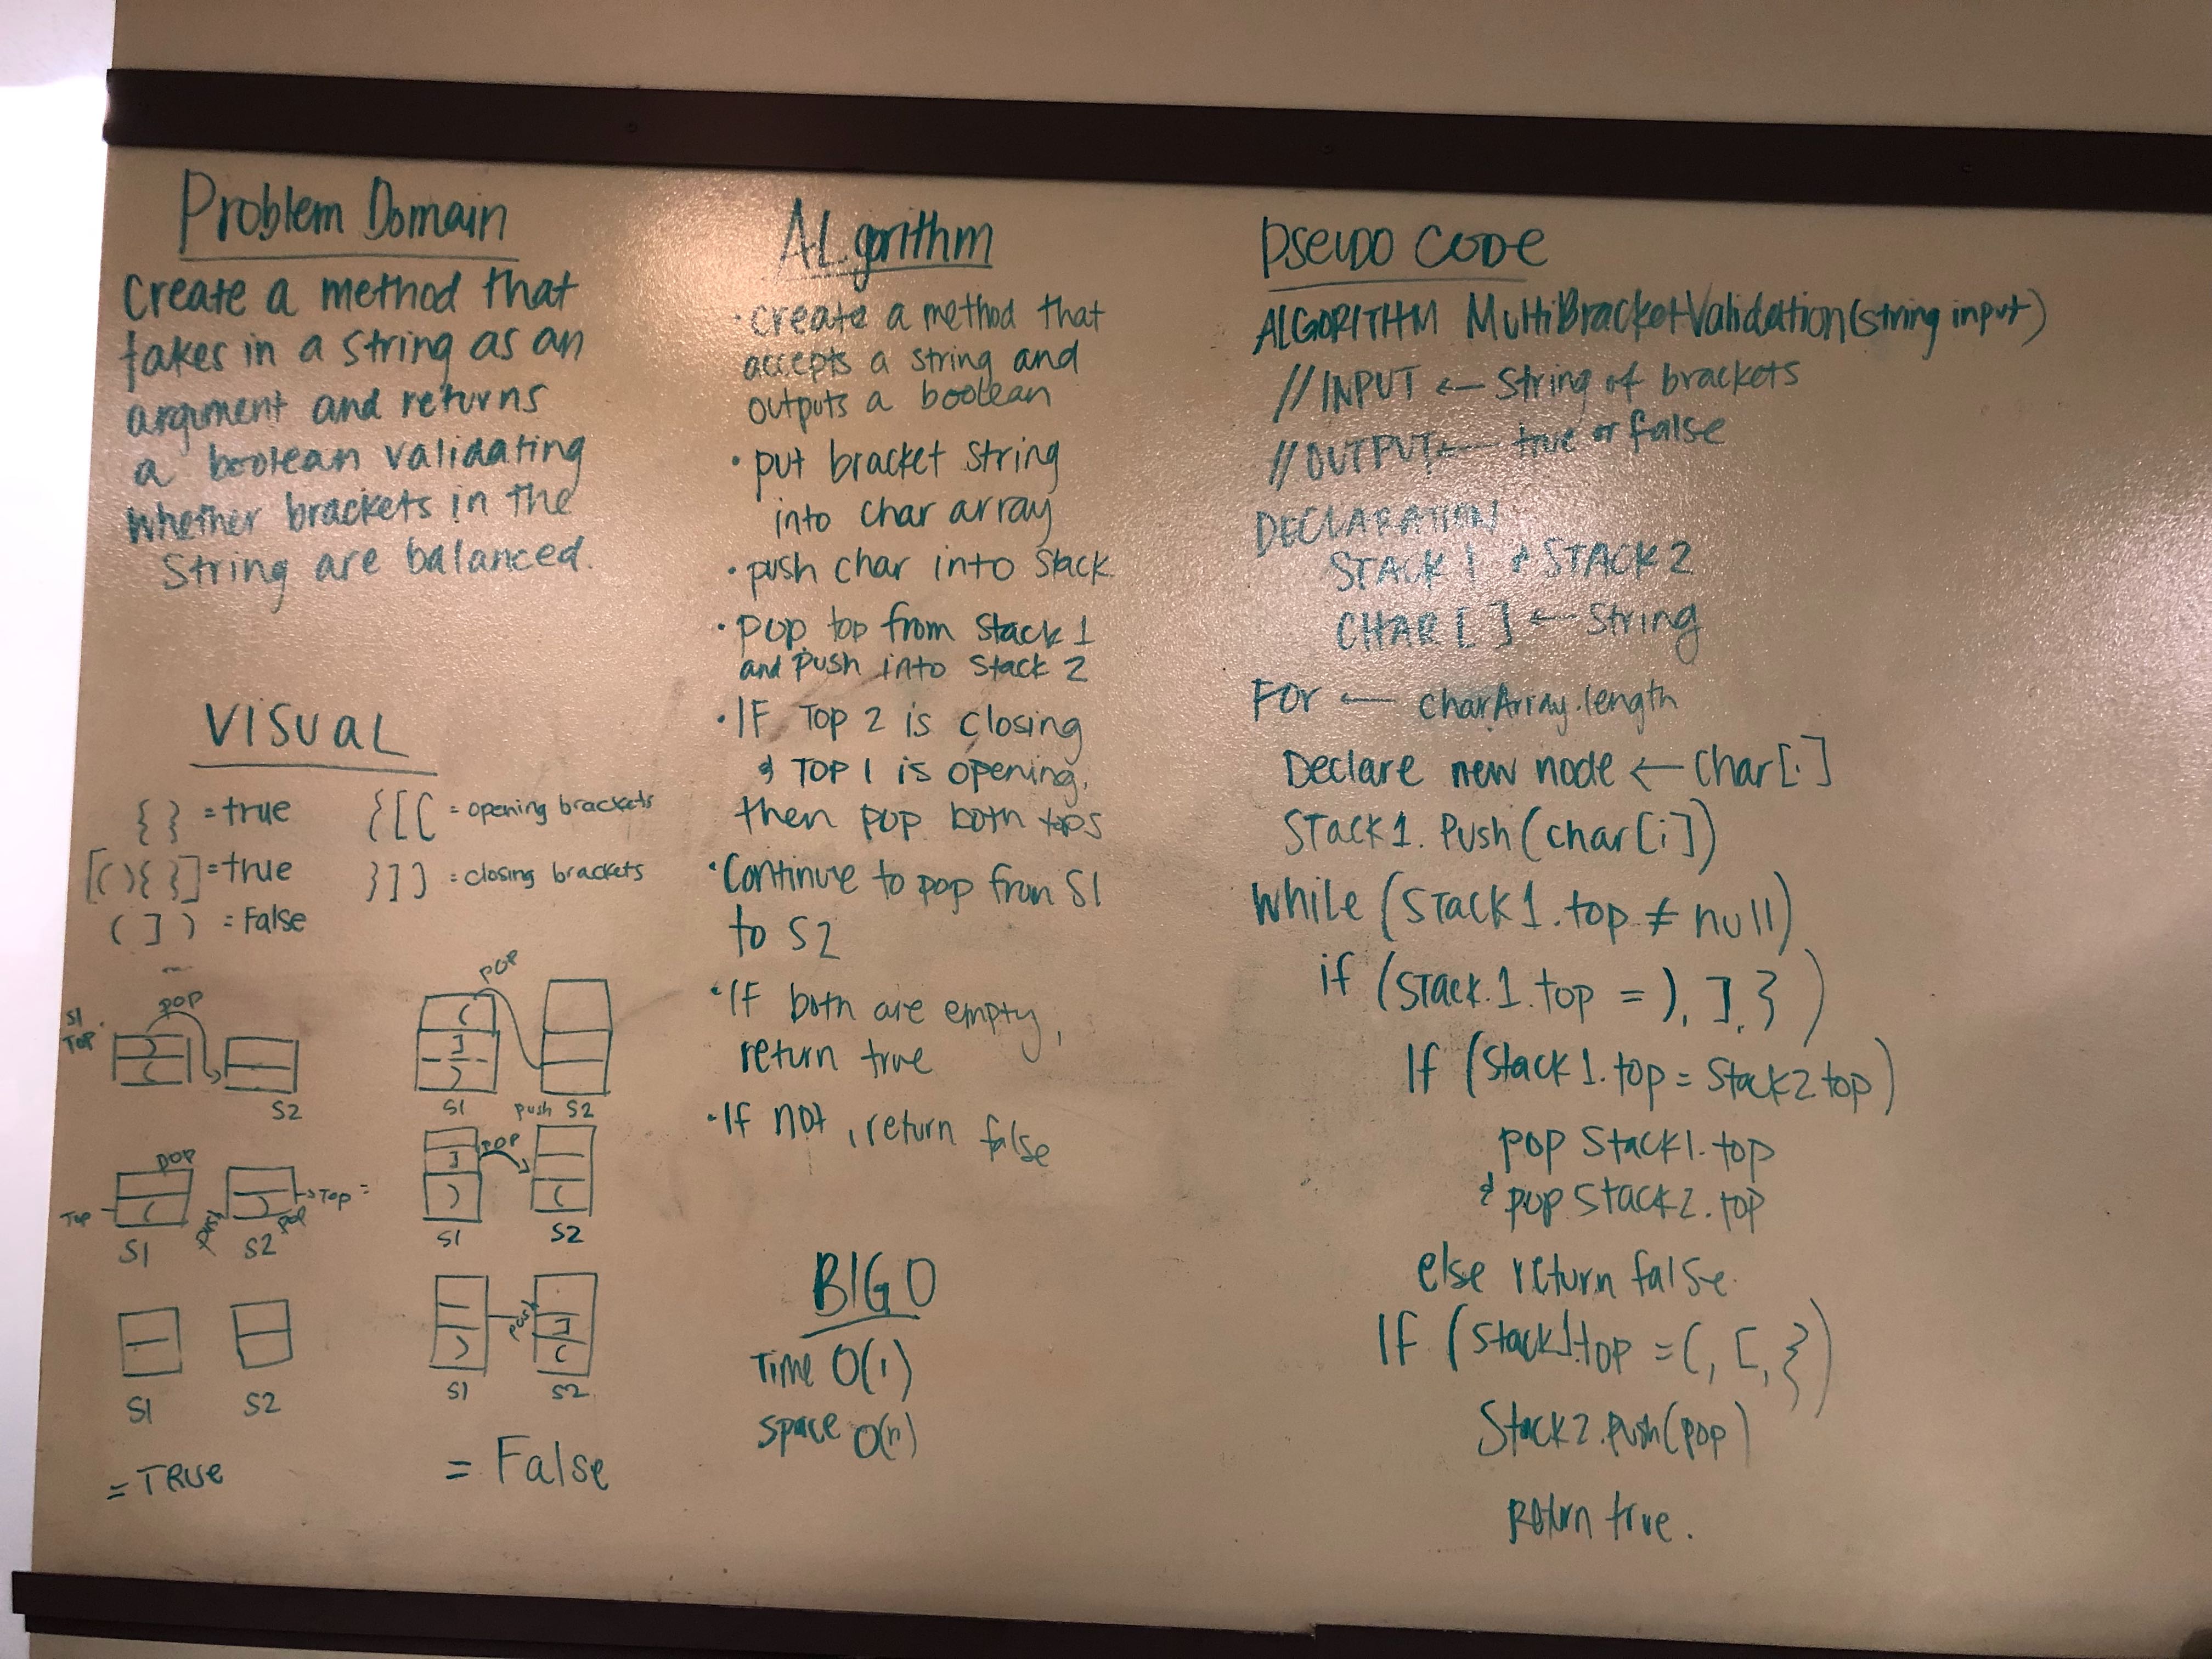 Problem Domain
Create a method that
takes in a string as an
argument and returns
a boolean validating
whether brackets in the
String are balanced.
VISUAL
{ } = true
{ [ ( = opening brackets
[( ){ }] = true
} ] ) = closing brackets
( ] ) = False
S1
TOP
pop
)
(
S2
pop
(
]
)
S1
push S2
pop
Top
(
S1
push
)
pop
S2
→Top =
pop
]
)
S1
(
S2
S1
S2
= TRUE
)
S1
push
]
(
S2
= False
ALgorithm
• create a method that
accepts a string and
outputs a boolean
• put bracket string
into char array
• push char into stack
• pop top from stack 1
and push into stack 2
• IF TOP 2 is closing
& TOP 1 is opening,
then pop both tops
• Continue to pop from S1
to S2
• If both are empty,
return true
• If not, return false
BIG O
Time O(1)
Space O(n)
PSEUDO CODE
ALGORITHM MultiBracketValidation(string input)
// INPUT ← String of brackets
// OUTPUT ← true or false
DECLARATION
STACK 1 & STACK 2
CHAR [ ] ← String
FOR ← charArray.length
Declare new node ← Char[i]
Stack1. Push(char[i])
While (Stack1.top ≠ null)
if (Stack.1.top = ), ], } )
If (Stack1.top = Stack2 top)
pop Stack1.top
& pop Stack2.top
else return false.
If (Stack1.top = (, [, } )
Stack2.Push(pop)
Return true.